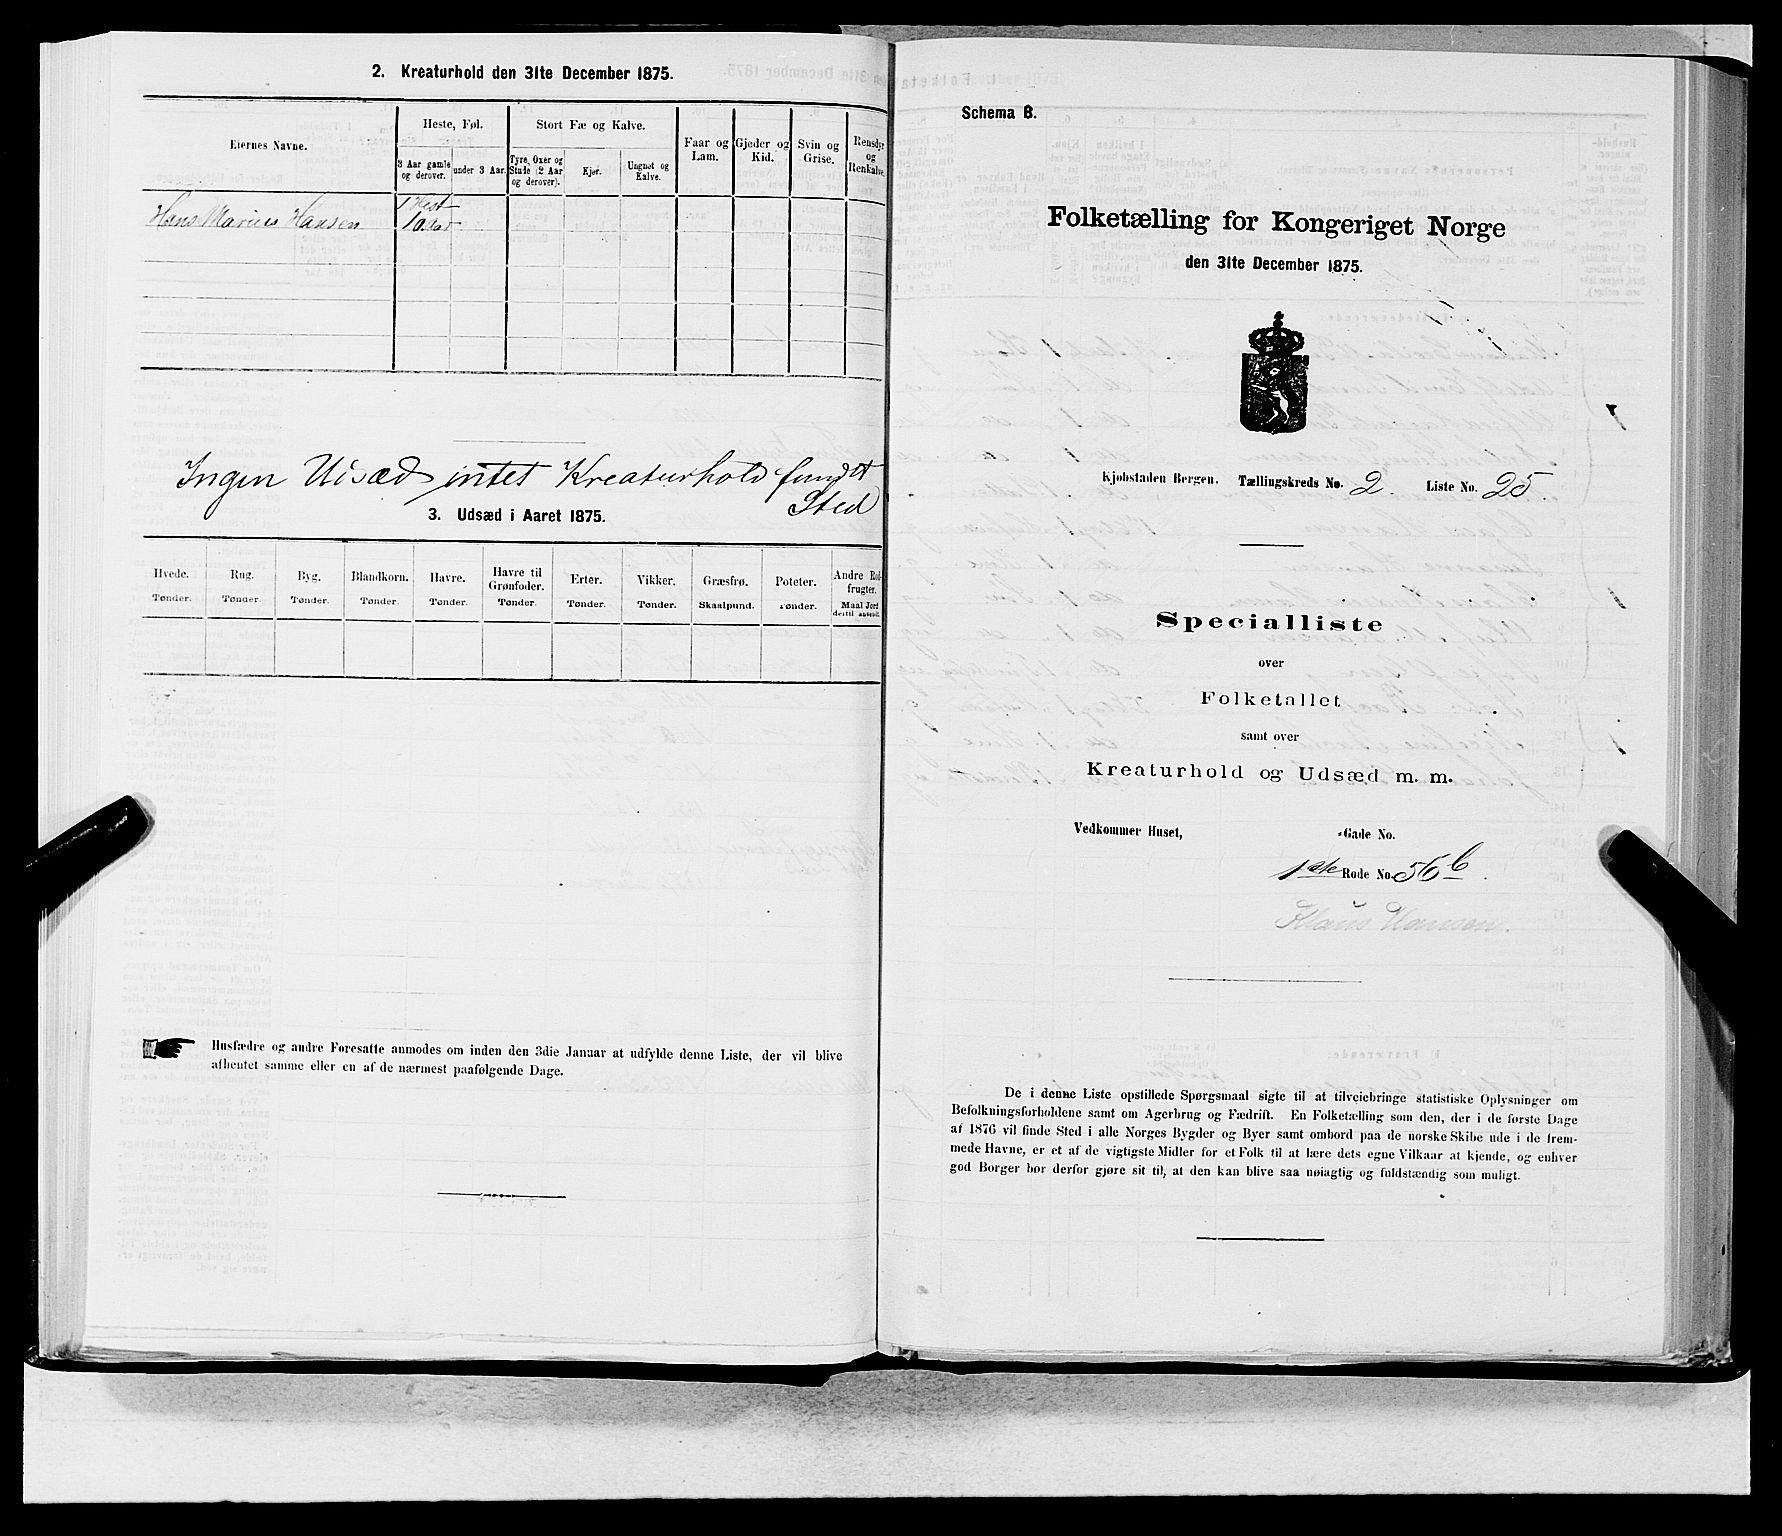 2. Kreaturhold den 31te December 1875.
Eiernes Navne.
Heste, Føl.
Stort Fæ og Kalve.
Faar og Lam.
Gjeder og Kid.
Svin og Grise.
Rensdyr og Renkalve.
3 Aar gamle og derover.
under 3 Aar.
Tyre, Oxer og Stude (2 Aar og derover).
Kjør.
Ungnøt og Kalve.
Hans Marius Hansen
1 Hest
10 Aar
Ingen Udsæd intet Kreaturhold fundet
Sted
3. Udsæd i Aaret 1875.
Hvede. Rug. Byg. Blandkorn. Havre. Havre til Grønfoder. Erter. Vikker. Græsfrø. Poteter. Andre Rodfrugter.
Tønder. Tønder. Tønder. Tønder. Tønder. Tønder. Tønder. Tønder. Skaalpund. Tønder. Maal Jord dertil anvendt.
Husfædre og andre Foresatte anmodes om inden den 3die Januar at udfylde denne Liste, der vil blive
afhentet samme eller en af de nærmest paafølgende Dage.
Schema B.
Folketælling for Kongeriget Norge
den 31te December 1875.
Kjøbstaden Bergen. Tællingskreds No. 2. Liste No. 25.
Specialliste
over
Folketallet
samt over
Kreaturhold og Udsæd m. m.
Vedkommer Huset, -Gade No.
1ste Rode No. 56 b.
Klaus Hansen.
De i denne Liste opstillede Spørgsmaal sigte til at tilveiebringe statistiske Oplysninger om
Befolkningsforholdene samt om Agerbrug og Fædrift. En Folketælling som den, der i de første Dage
af 1876 vil finde Sted i alle Norges Bygder og Byer samt ombord paa de norske Skibe ude i de frem-
mede Havne, er et af de vigtigste Midler for et Folk til at lære dets egne Vilkaar at kjende, og enhver
god Borger bør derfor gjøre sit til, at den kan blive saa nøiagtig og fuldstændig som muligt.